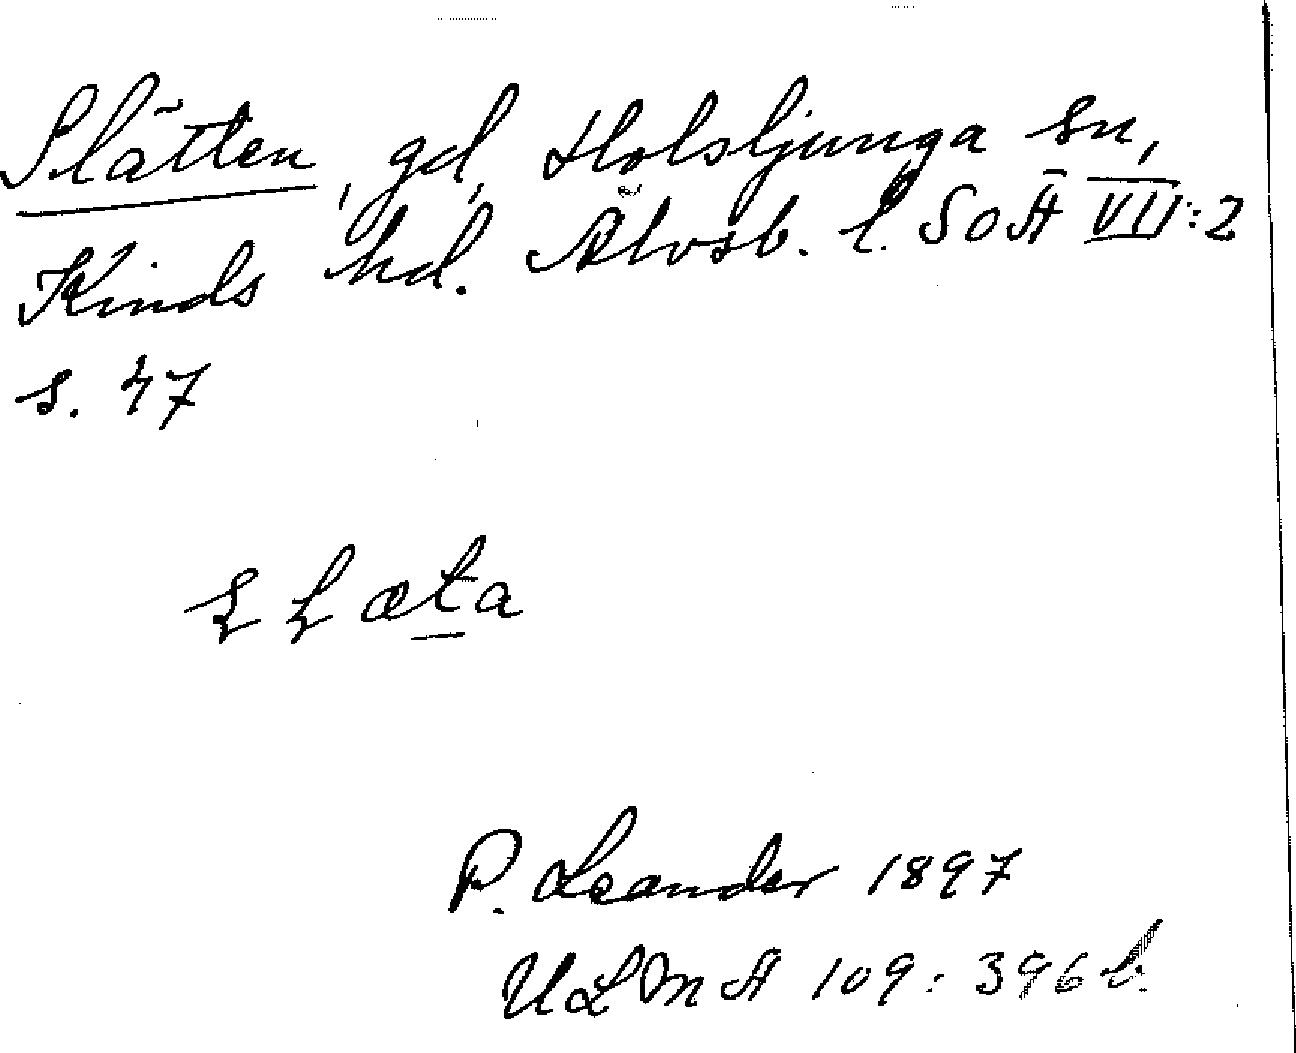 Slätten, gd, Holsljunga sn,
Kinds hd. Älvsb. l. SOÄ VII:2
s. 47
P. Leander 1897
ULMA 109:396 b.